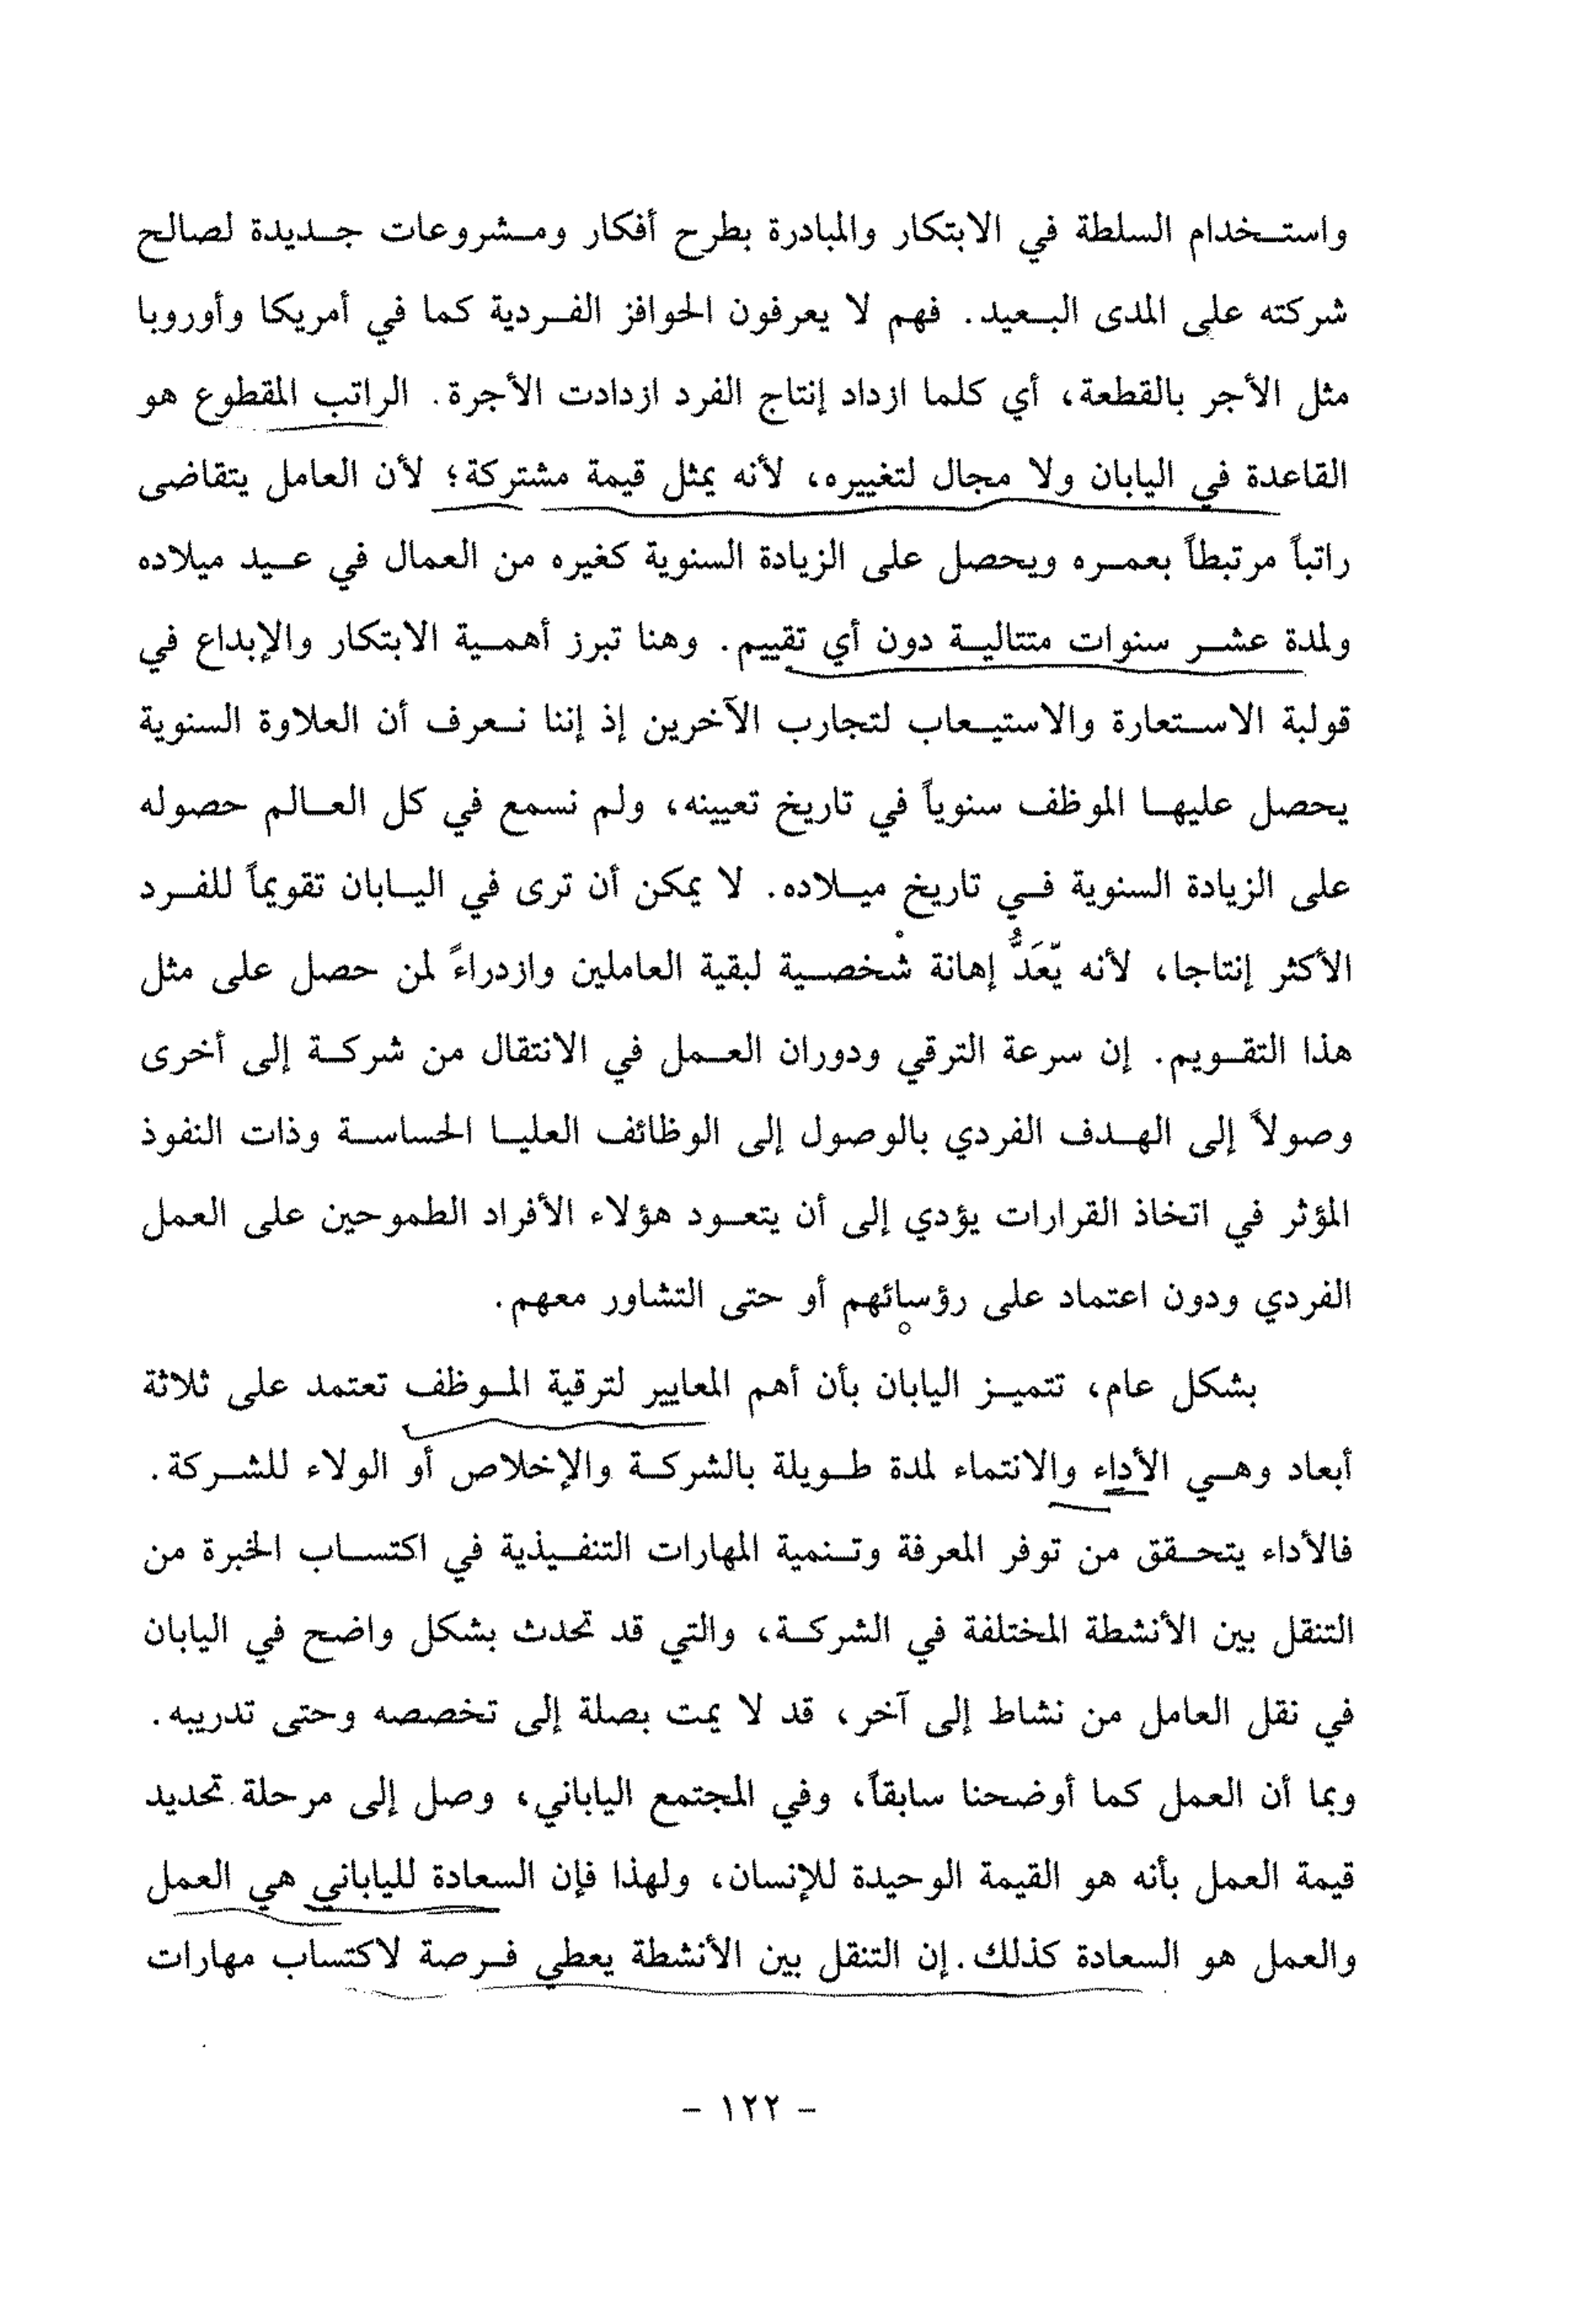 واستخدام السلطة في الابتكار والمبادرة بطرح أفكار ومشروعات جديدة لصالح
شركته على المدى البعيد. فهم لا يعرفون الحوافز الفردية كما في أمريكا وأوروبا
مثل الأجر بالقطعة، أي كلما ازداد إنتاج الفرد ازدادت الأجرة. الراتب المقطوع هو
القاعدة في اليابان ولا مجال لتغييره، لأنه يمثل قيمة مشتركة؛ لأن العامل يتقاضى
راتباً مرتبطاً بعمره ويحصل على الزيادة السنوية كغيره من العمال في عيد ميلاده
ولمدة عشر سنوات متتالية دون أي تقييم. وهنا تبرز أهمية الابتكار والإبداع في
قولبة الاستعارة والاستيعاب لتجارب الآخرين إذ إننا نعرف أن العلاوة السنوية
يحصل عليها الموظف سنوياً في تاريخ تعيينه، ولم نسمع في كل العالم حصوله
على الزيادة السنوية في تاريخ ميلاده. لا يمكن أن ترى في اليابان تقويماً للفرد
الأكثر إنتاجا، لأنه يّعَدُّ إهانة شْخصية لبقية العاملين وازدراءً لمن حصل على مثل
هذا التقويم. إن سرعة الترقي ودوران العمل في الانتقال من شركة إلى أخرى
وصولاً إلى الهدف الفردي بالوصول إلى الوظائف العليا الحساسة وذات النفوذ
المؤثر في اتخاذ القرارات يؤدي إلى أن يتعود هؤلاء الأفراد الطموحين على العمل
الفردي ودون اعتماد على رؤسائهم أو حتى التشاور معهم.
بشكل عام، تتميز اليابان بأن أهم المعايير لترقية الموظف تعتمد على ثلاثة
أبعاد وهي الأداء والانتماء لمدة طويلة بالشركة والإخلاص أو الولاء للشركة.
فالأداء يتحقق من توفر المعرفة وتنمية المهارات التنفيذية في اكتساب الخبرة من
التنقل بين الأنشطة المختلفة في الشركة، والتي قد تحدث بشكل واضح في اليابان
في نقل العامل من نشاط إلى آخر، قد لا يمت بصلة إلى تخصصه وحتى تدريبه.
وبما أن العمل كما أوضحنا سابقاً، وفي المجتمع الياباني، وصل إلى مرحلة تحديد
قيمة العمل بأنه هو القيمة الوحيدة للإنسان، ولهذا فإن السعادة للياباني هي العمل
والعمل هو السعادة كذلك. إن التنقل بين الأنشطة يعطي فرصة لاكتساب مهارات
- ١٢٢ -